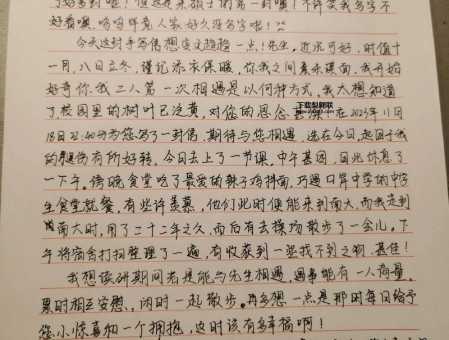 好看噢，呜呜毕竟人家好久没写字啦！
今天这封手写信想定义稳一点！先生，近来可好，时值十
一月八日立冬，谨记添衣保暖，你我之间素未谋面，我开始
好奇你我二人第一次相遇是以何种方式，我太想知道
了校园里的树叶已泛黄，对您的思念
18日22:40分为您写了一封信，期待与您相遇，选在今日，起因于我
的 有所好转，今日去上了一节课，中午 ，因此休息了
一下午，傍晚食堂吃了最爱的辣子鸡拌面，巧遇口岸中学的中学
生食堂就餐，有些许羡慕，他们此时便能来到南大，而我走到
南大时，用了二十二年之久，而后有去操场散步了一会儿，下
午将宿舍打扫整理了一遍，有收获到一些找不到之物，甚佳！
我想读研期间若是能与先生相遇，遇事能有一人商量，
累时相互安慰，闲时一起散步，再多想一点是那时每日给予
您小惊喜和一个拥抱，这时该有多幸福啊！